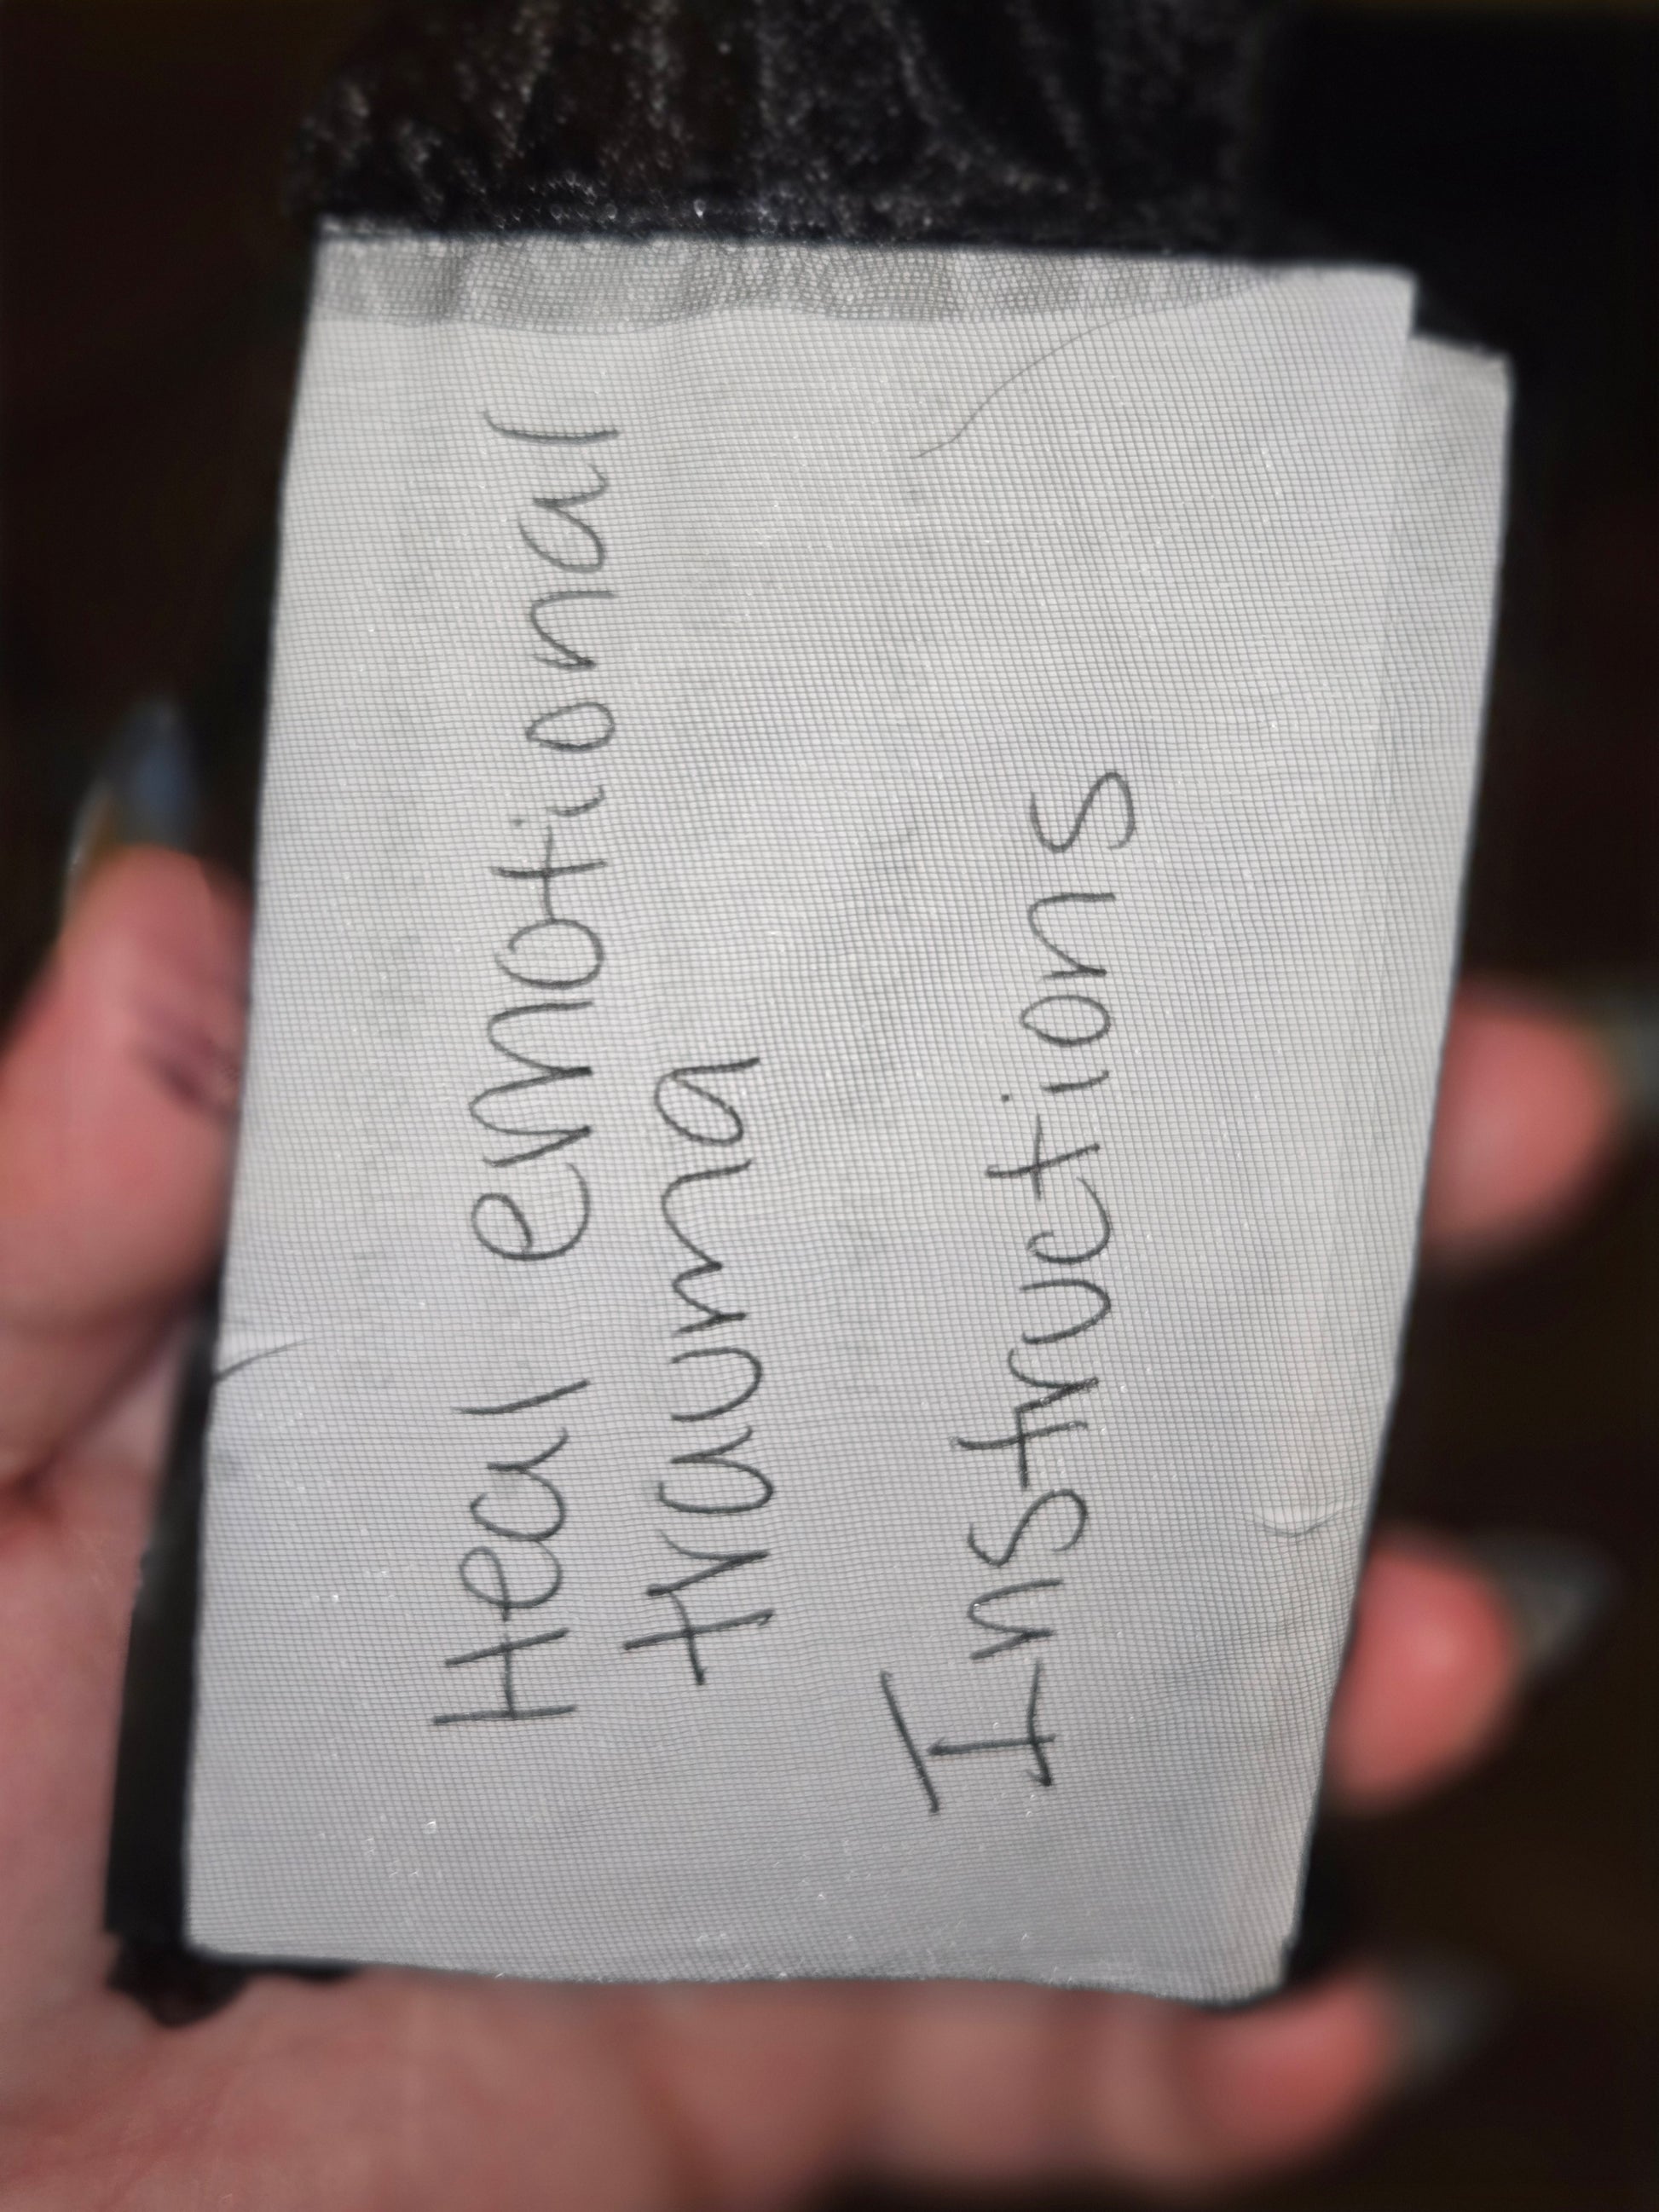 Heal emotional
trauma
Instructions